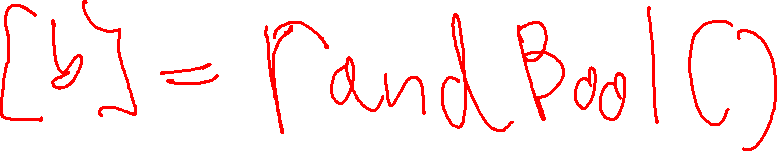 [b] = randBool()